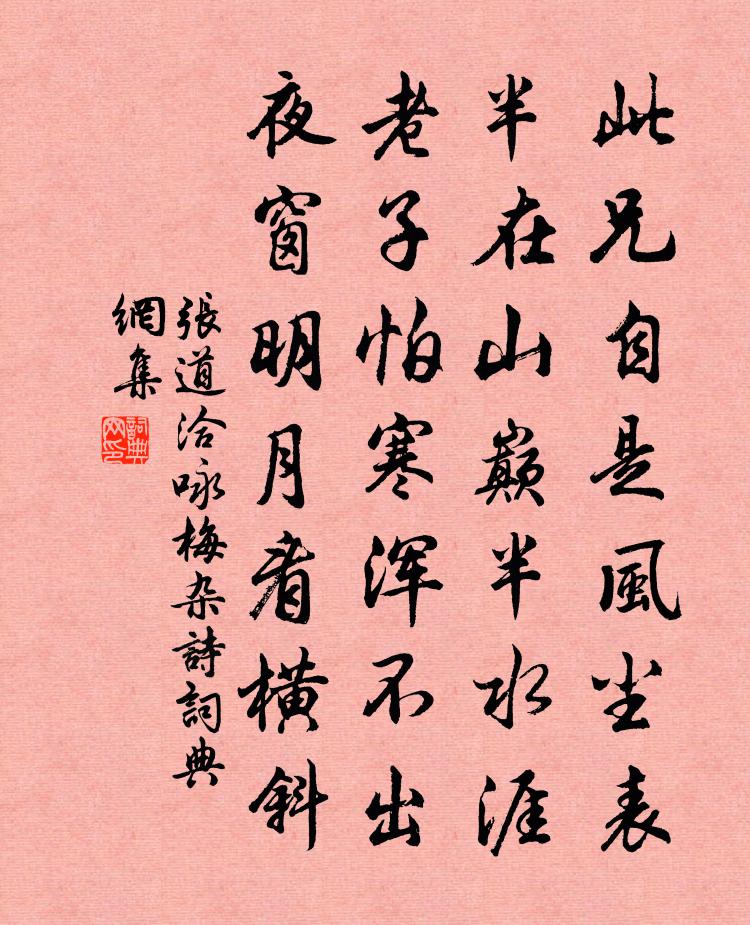 此兄自是風尘表
半在山巔半水涯
老子怕寒浑不出
夜窗明月看橫斜
張道洽咏梅杂詩詞典
網集
詞典
网印